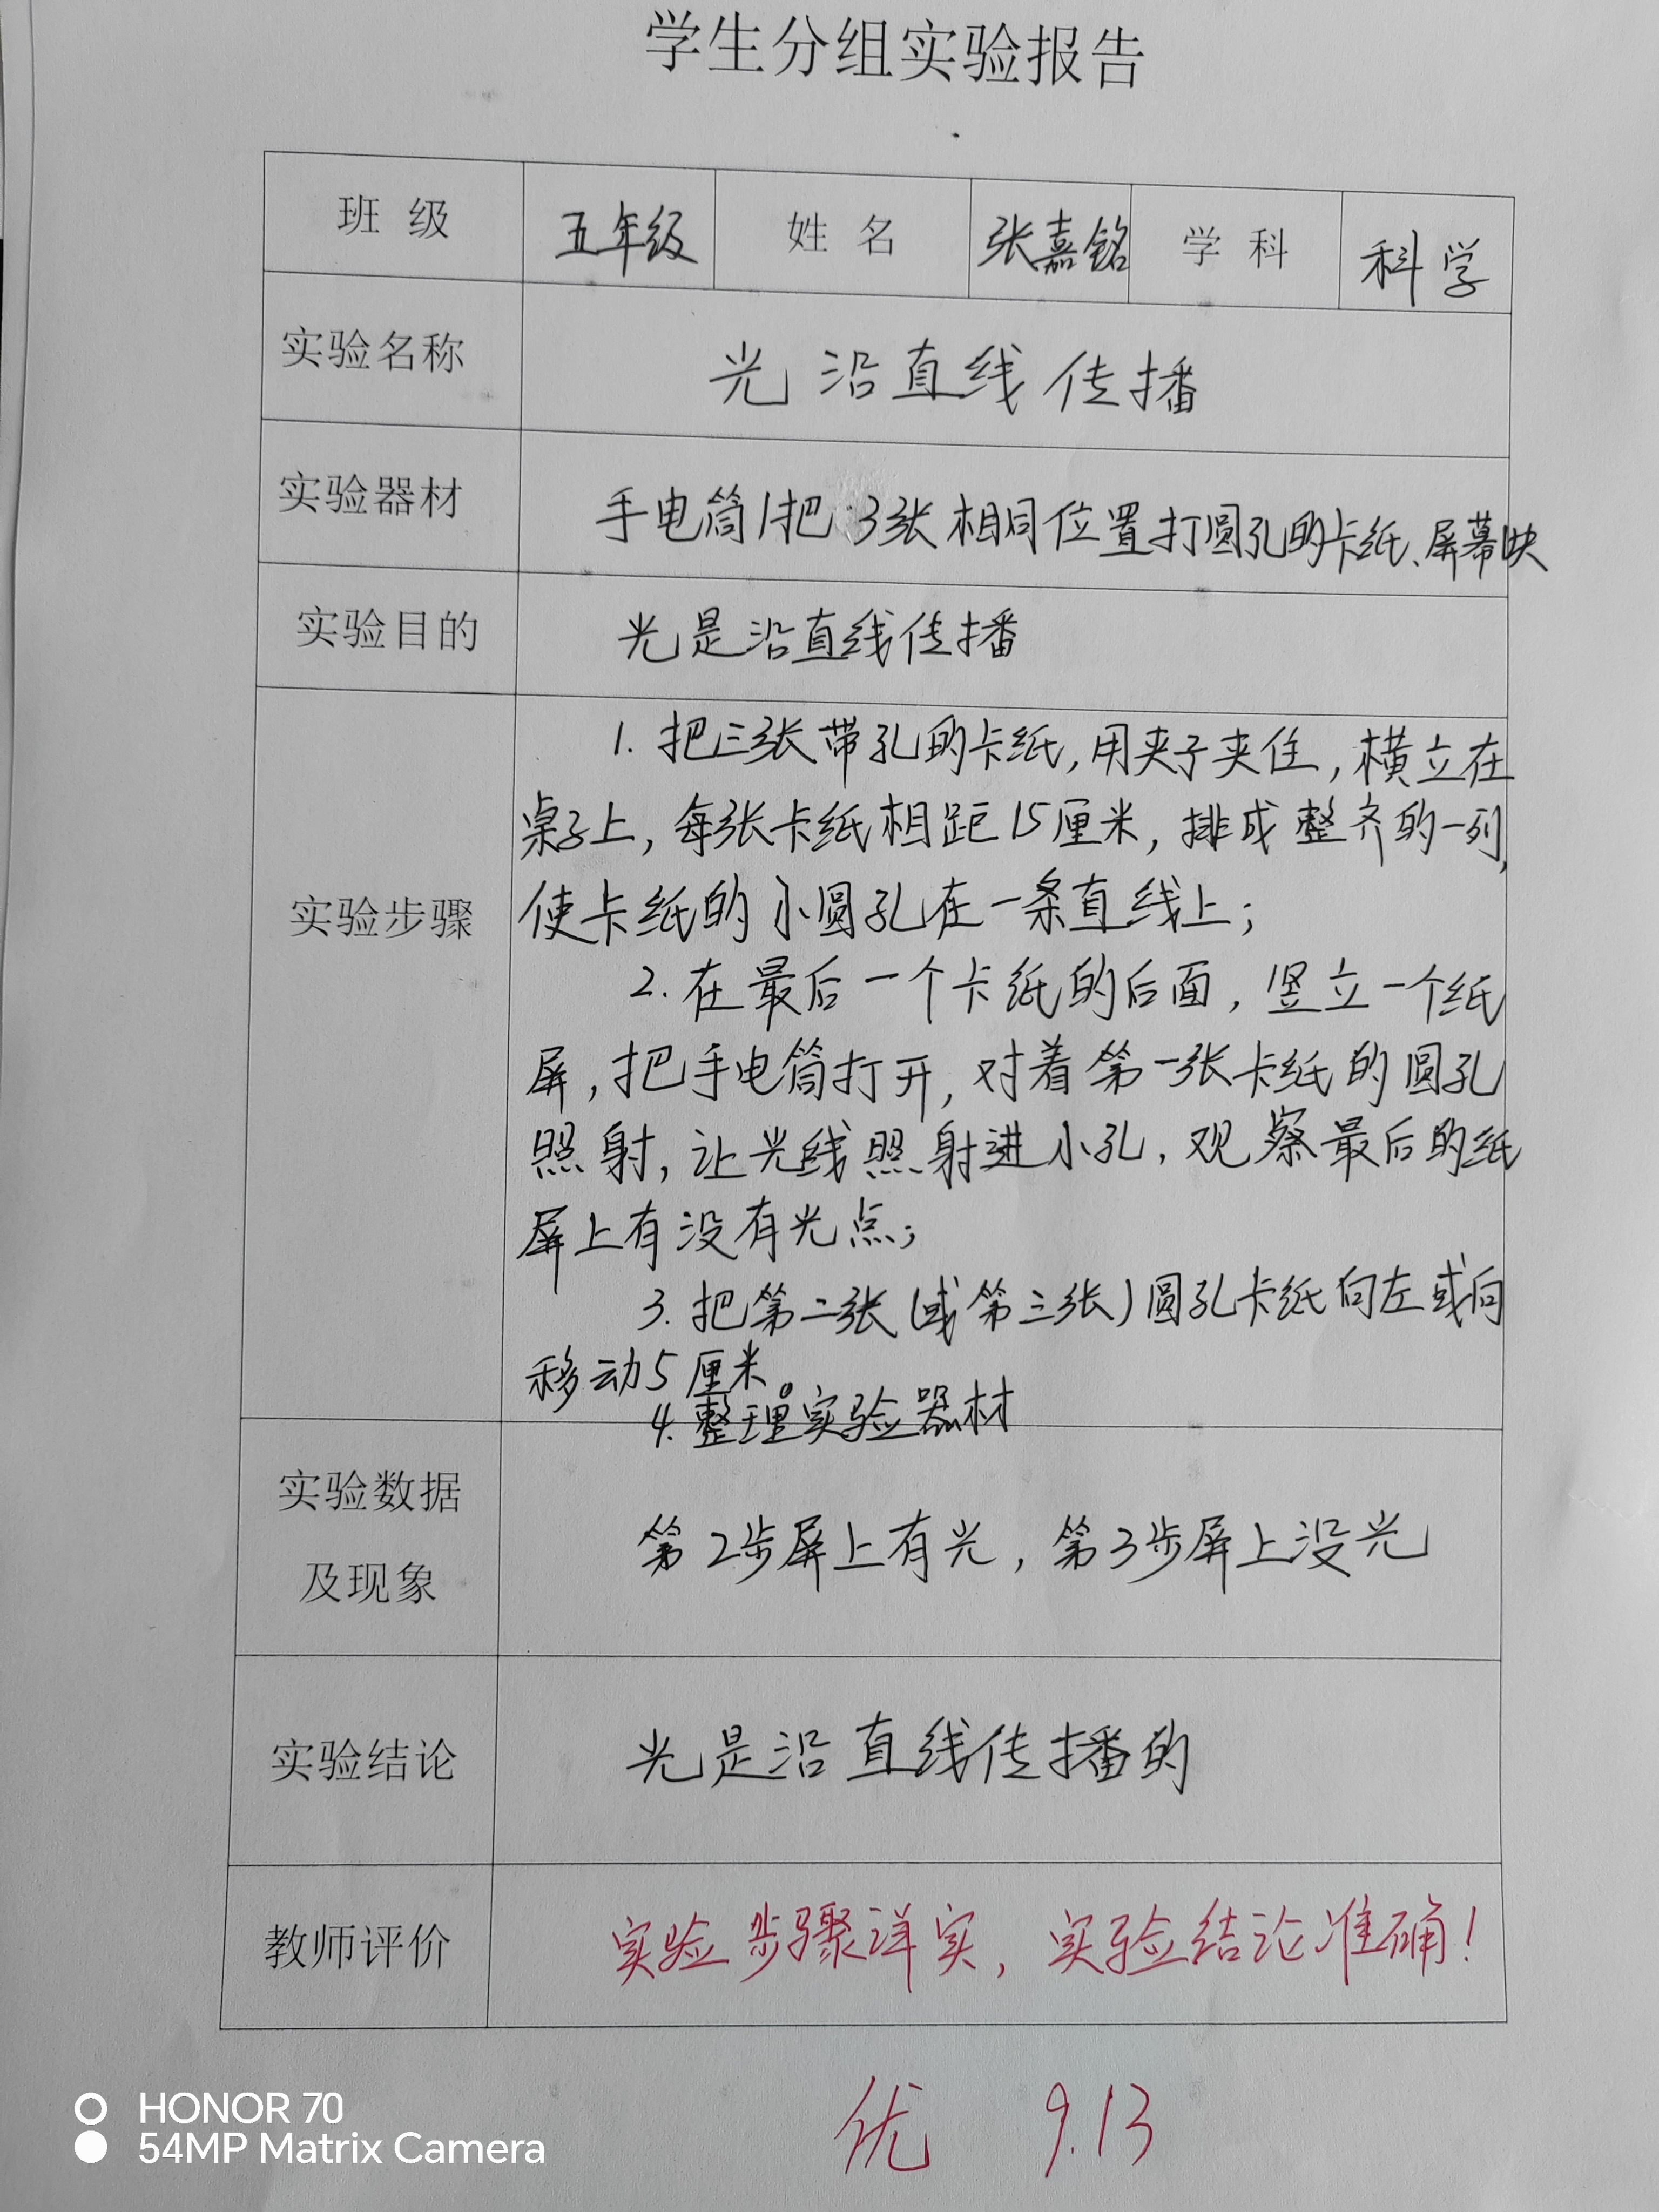 学生分组实验报告
班 级 五年级 姓 名 张嘉铭 学 科 科学
实验名称 光沿直线传播
实验器材 手电筒1把 3张相同位置打圆孔的卡纸、屏幕1块
实验目的 光是沿直线传播
1. 把三张带孔的卡纸,用夹子夹住,横立在
桌子上,每张卡纸相距15厘米,排成整齐的一列,
实验步骤 使卡纸的小圆孔在一条直线上;
2. 在最后一个卡纸的后面,竖立一个纸
屏,把手电筒打开,对着第一张卡纸的圆孔
照射,让光线照射进小孔,观察最后的纸
屏上有没有光点;
3. 把第二张(或第三张)圆孔卡纸向左或向
移动5厘米。
4. 整理实验器材
实验数据
及现象
第2步屏上有光,第3步屏上没光
实验结论 光是沿直线传播的
教师评价 实验步骤详实,实验结论准确!
优 9.13
HONOR 70
54MP Matrix Camera